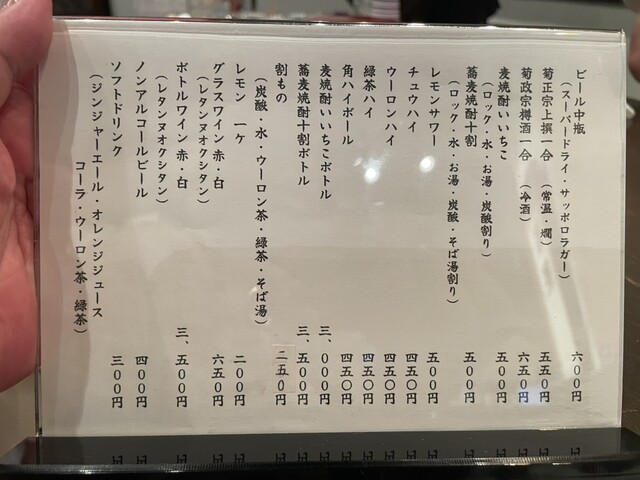 ビール中瓶 六〇〇円
（スーパードライ・サッポロラガー）
菊正宗上撰一合 （常温・燗） 五五〇円
菊政宗樽酒一合 （冷酒） 六五〇円
麦焼酎いいちこ 五〇〇円
（ロック・水・お湯・炭酸割り）
蕎麦焼酎十割 五〇〇円
（ロック・水・お湯・炭酸・そば湯割り）
レモンサワー 五〇〇円
チュウハイ 四五〇円
ウーロンハイ 四五〇円
緑茶ハイ 四五〇円
角ハイボール 四五〇円
麦焼酎いいちこボトル 三、〇〇〇円
蕎麦焼酎十割ボトル 三、五〇〇円
割もの 二五〇円
（炭酸・水・ウーロン茶・緑茶・そば湯）
レモン 一ケ 二〇〇円
グラスワイン 赤・白 六五〇円
（レタンヌオクシタン）
ボトルワイン 赤・白 三、五〇〇円
（レタンヌオクシタン）
ノンアルコールビール 四〇〇円
ソフトドリンク 三〇〇円
（ジンジャーエール・オレンジジュース
コーラ・ウーロン茶・緑茶）